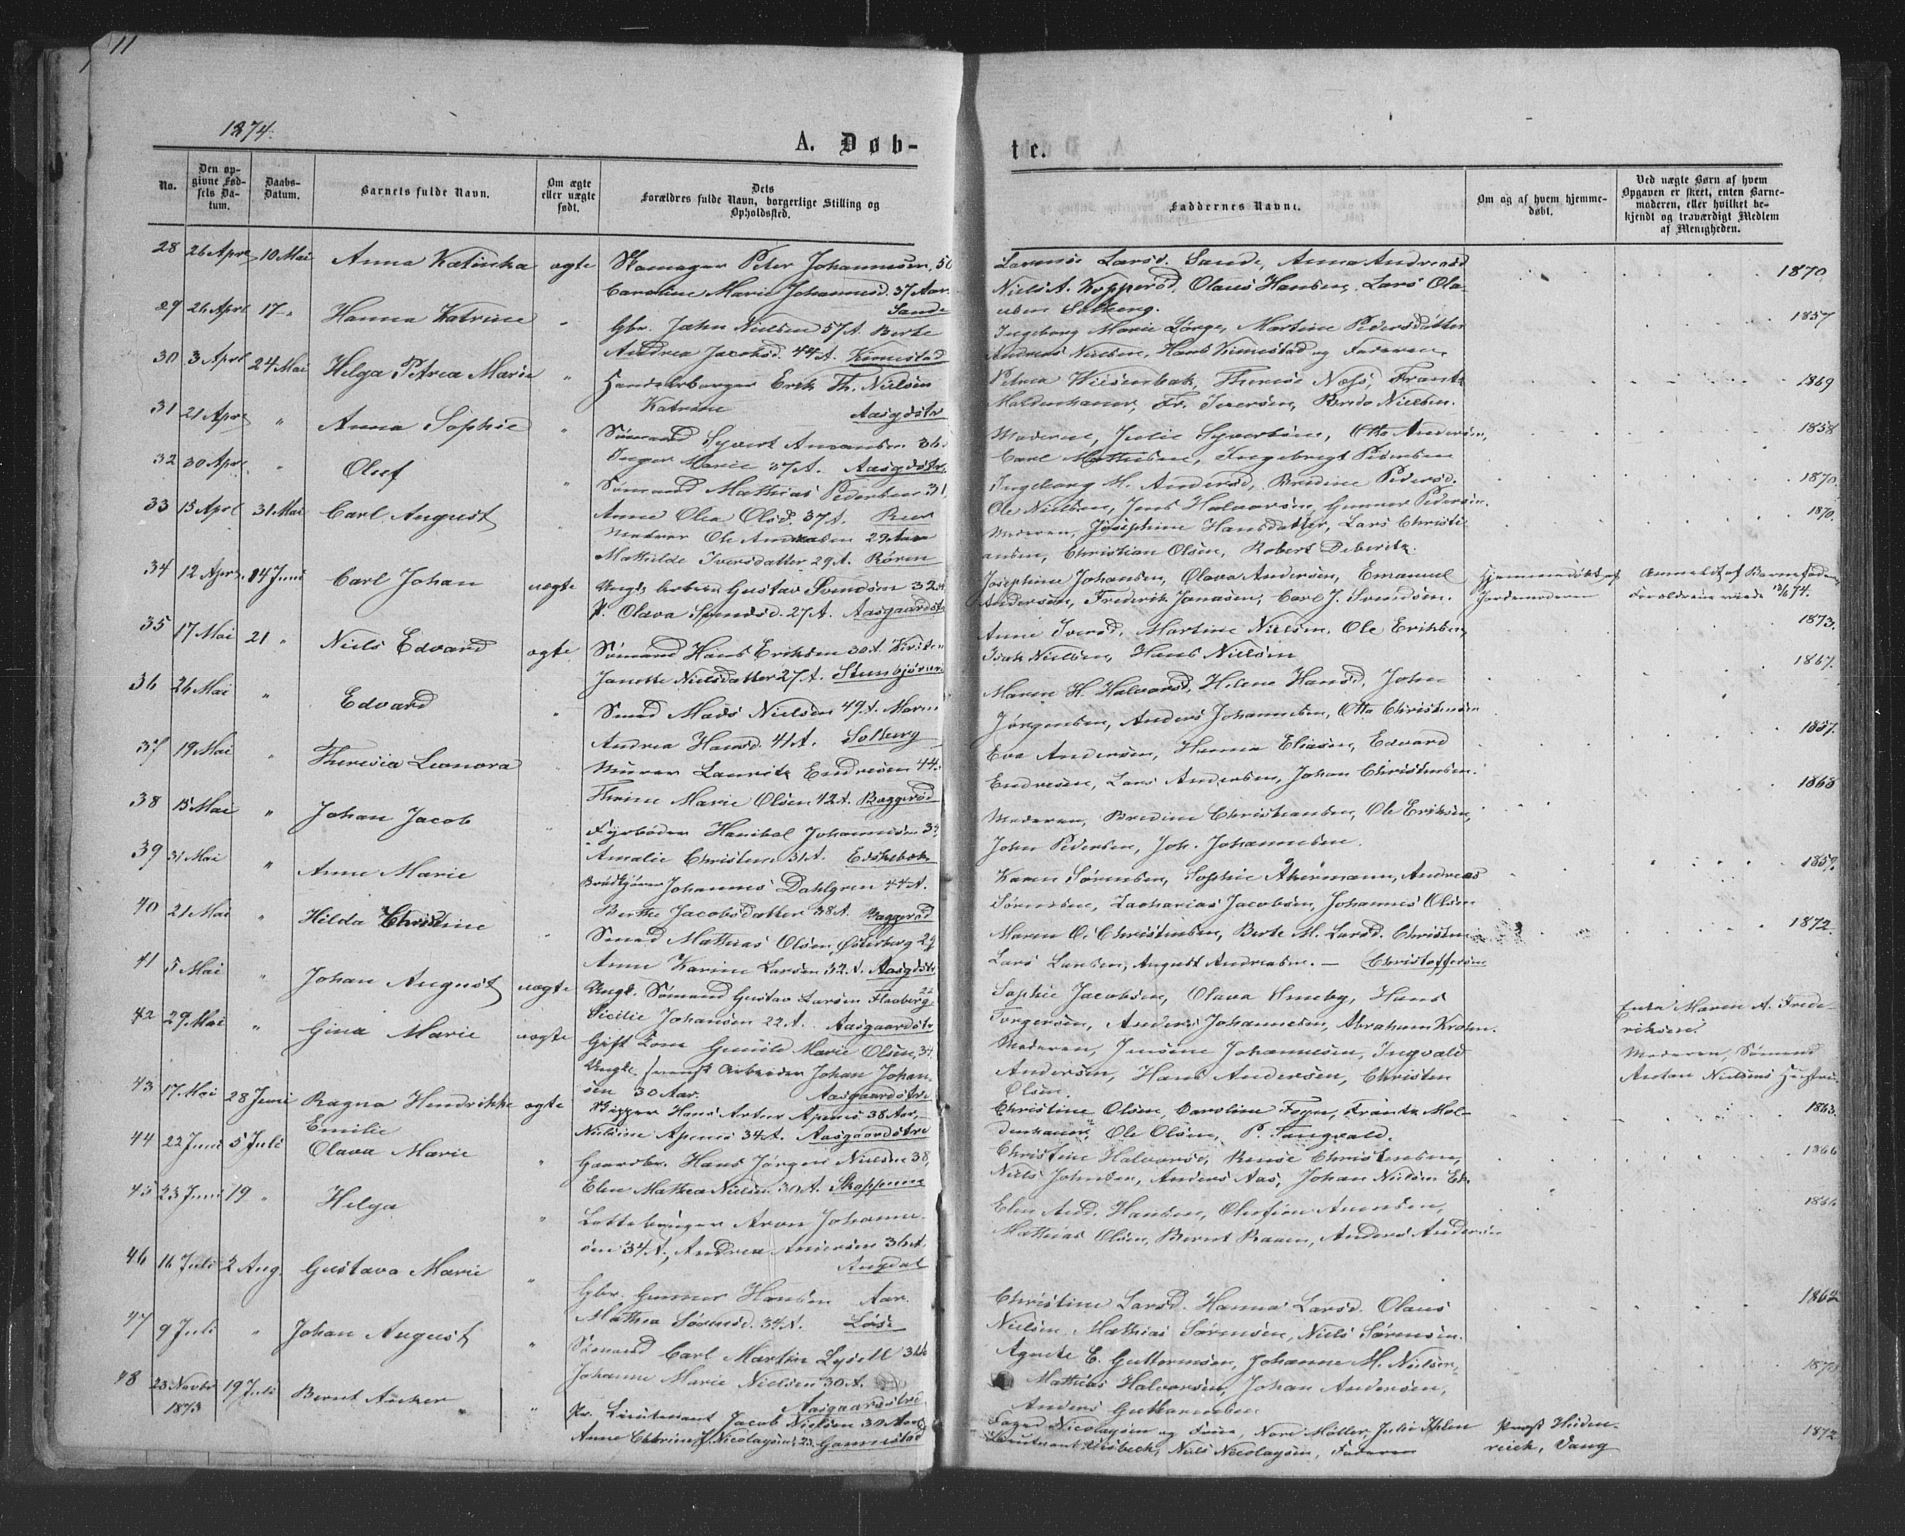 11
1874.
A. Døb-
te.
No.
Den op-
givne Fød-
sels Da-
tum.
Daabs-
Datum.
Barnets fulde Navn.
Om ægte
eller uægte
født.
Dets
Forældres fulde Navn, borgerlige Stilling og
Opholdssted.
Faddernes Navne.
Om og af hvem hjemme-
døbt.
Ved uægte Børn af hvem
Opgaven er skeet, enten Barne-
moderen, eller hvilket be-
kjendt og troværdigt Medlem
af Menigheden.
28 26 Apr 10 Mai Anna Katinka ægte Skomager Peter Johannesen 50
Caroline Marie Johannesd. 37 Aar.
Sande
Larsd. Sande, Anna Andreasd
Niels A. Kopperød, Olaus Hansen, Lars Ola-
usen Solberg.
1870
29 26 Apr 17 " Hanna Katrine " Gbr. John Nielsen 57 A. Berte
Andrea Jacobsd. 44 A. Kirnestad
Ingeborg Marie Lørge, Martine Pedersdatter
Andreas Nielsen, Hans Kirnestad og Faderen.
1857
30 3 Apr 24 Mai Helga Petrea Marie " Handelsborger Erik Th. Nielsen
Katrine Aasgdstr
Petrea Wiesenbak, Therese Næss, Frantz
Moldenhauer, Fr. Iversen, Bredo Nielsen.
1869
31 21 Apr " Anna Sophie " Sømand Syvert Amansen 36
Inger Marie 37 A. Aasgdstr.
Moderen, Julie Syvertsen, Otto Andersen,
Carl Mathisen, Ingebrigt Pedersen
1858
32 30 Apr. " Oluf " Sømand Mathias Pedersen 31,
Anne Olea Olsd. 37 A.
Ingeborg M. Andersd, Bredine Pedersd.
Ole Nielsen, Jens Halvorsen, Gunner Pedersen.
1870.
33 15 Apr 31 Mai Carl August Murer Ole Andersen 29 Aar
Mathilde Iversdatter 29 A. Røren
Moderen, Josephine Hansdatter, Lars Christi-
ansen, Christian Olsen, Robert Deberitz.
1870.
34 12 Apr. 14 Juni Carl Johan uægte Ungk. Arbeid. Gustav Svendsen 32
P. Olava Svendsd. 27 A. Aasgaardstr
Josephine Johansen, Olava Andersen, Emanuel
Andersen, Frederik Jonasen, Carl J. Svendsen.
Hjemmedøbt af
Jordemoderen
Anmeldt af Barnefaderen
Forældrene viede 13/6 74.
35 17 Mai 21 " Niels Edvard ægte Sømand Hans Eriksen 30 A.
Janette Nielsdatter 27 A.
Anne Iversd. Martine Nielsen, Ole Eriksen,
Isak Nielsen, Hans Nielsen
1873.
36 26 Mai " Edvard " Smed Mads Nielsen 49 A. Maren
Andrea Hansd. 41 A. Solberg
Maren H. Halvorsd, Helene Hansd, John
Jørgensen, Anders Johannesen, Otto Christensen
1867.
37 19 Mai " Theresia Leonora Murer Lauritz Endresen 44.
Thrine Marie Olsen 42 A. Baggerød
Eva Andersen, Hanna Eliasen, Edvard
Endresen, Lars Andersen, Johan Christensen.
1857.
38 15 Mai " Johan Jacob Fyrbøder Hanibal Johannesen 34
Amalie Christens. 31 A.
Moderen, Bredine Christiansen, Ole Eriksen,
John Pedersen, Joh. Johannesen.
1868
39 31 Mai " Anne Marie Brødkjører Johannes Dahlgren 44 A.
Berthe Jacobsdatter 38 A. Baggerød
Karen Sørensen, Sophie Akermann, Andreas
Sørensen, Zacharias Jacobsen, Johannes Olsen
1859.
40 21 Mai " Hilda Christine " Smed Mathias Olsen, Østerberg 29
Anne Karine Larsen 32 A. Aasgdstr
Maren O. Christensen, Berte M. Larsd. Christen
Lars Larsen, August Andreasen. — Christoffersen
1872.
41 5 Mai " Johan August uægte Ungk. Sømand Gustav Larsen Flaaberg 22
Cicilie Johansen 22 A. Aasgaardstr
Sophie Jacobsen, Olava Smeby, Hans
Torgersen, Anders Johannesen, Abraham Krohn.
Enke Maren A. Frede-
riksen.
42 29 Mai " Gina Marie uægte Gift Kone Gunild Marie Olsen, 34.
Ungk. svensk Arbeider Johan Johan-
sen 30 Aar. Aasgaardstr.
Moderen, Josine Johannesen, Ingvald
Andersen, Hans Andersen, Christen
Olsen.
Moderen, Sømand
Anton Nielsens Hustru
43 17 Mai 28 Juni Ragna Hendrikke
Emilie
ægte Skipper Hans Arter Apenes 38 Aar.
Nielsine Apenes 34 A. Aasgaardstr
Christine Olsen, Caroline Foyn, Frantz Mol-
denhauer, Ole Olsen, P. Tangvald.
1863.
44 22 Juni 5 Juli Olava Marie " Gaardbr. Hans Jørgen Nielsen 38,
Elen Mathea Nielsen 30 A. Skoppum
Christine Halvorsd, Christensen,
Niels Johnsen, Anders Aas, Johan Nielsen Ek
1866
45 23 Juni 19 " Helga " Aron Johanne-
sen 34 A, Andrea Andersen 36 A.
Augdal
Elen And. Hansen, Olefine Amundsen,
Mathias Olsen, Bernt Raaen, Anders Andersen
1864
46 16 Juli 2 Aug. Gustava Marie " Gbr. Gunner Hansen Aar.
Mathea Sørensd. 34 A.
Christine Larsd. Hanna Larsd. Olaus
Nielsen, Mathias Sørensen, Niels Sørensen.
1862
47 9 Juli " Johan August " Sømand Carl Martin Lysell 31
Johanne Marie Nielsen 30 A.
Aasgaardstr
Agnete E. Guttormsen, Johanne M. Nielsen,
Mathias Halvorsen, Johan Andersen,
Anders Guttormsen.
48 23 Novbr
1873
19 Juli Bernt Anker " Pr. Lieutenant Jacob Nielsen 30 Aar
Anne Cathrine J. Nicolaysen 23 Gannestad
Foged Nicolaysen og Frue, Nora Møller, Julie
Lieutenant, Niels Nicolaysen, Faderen
Provst Heiden-
reich, Vang
1872